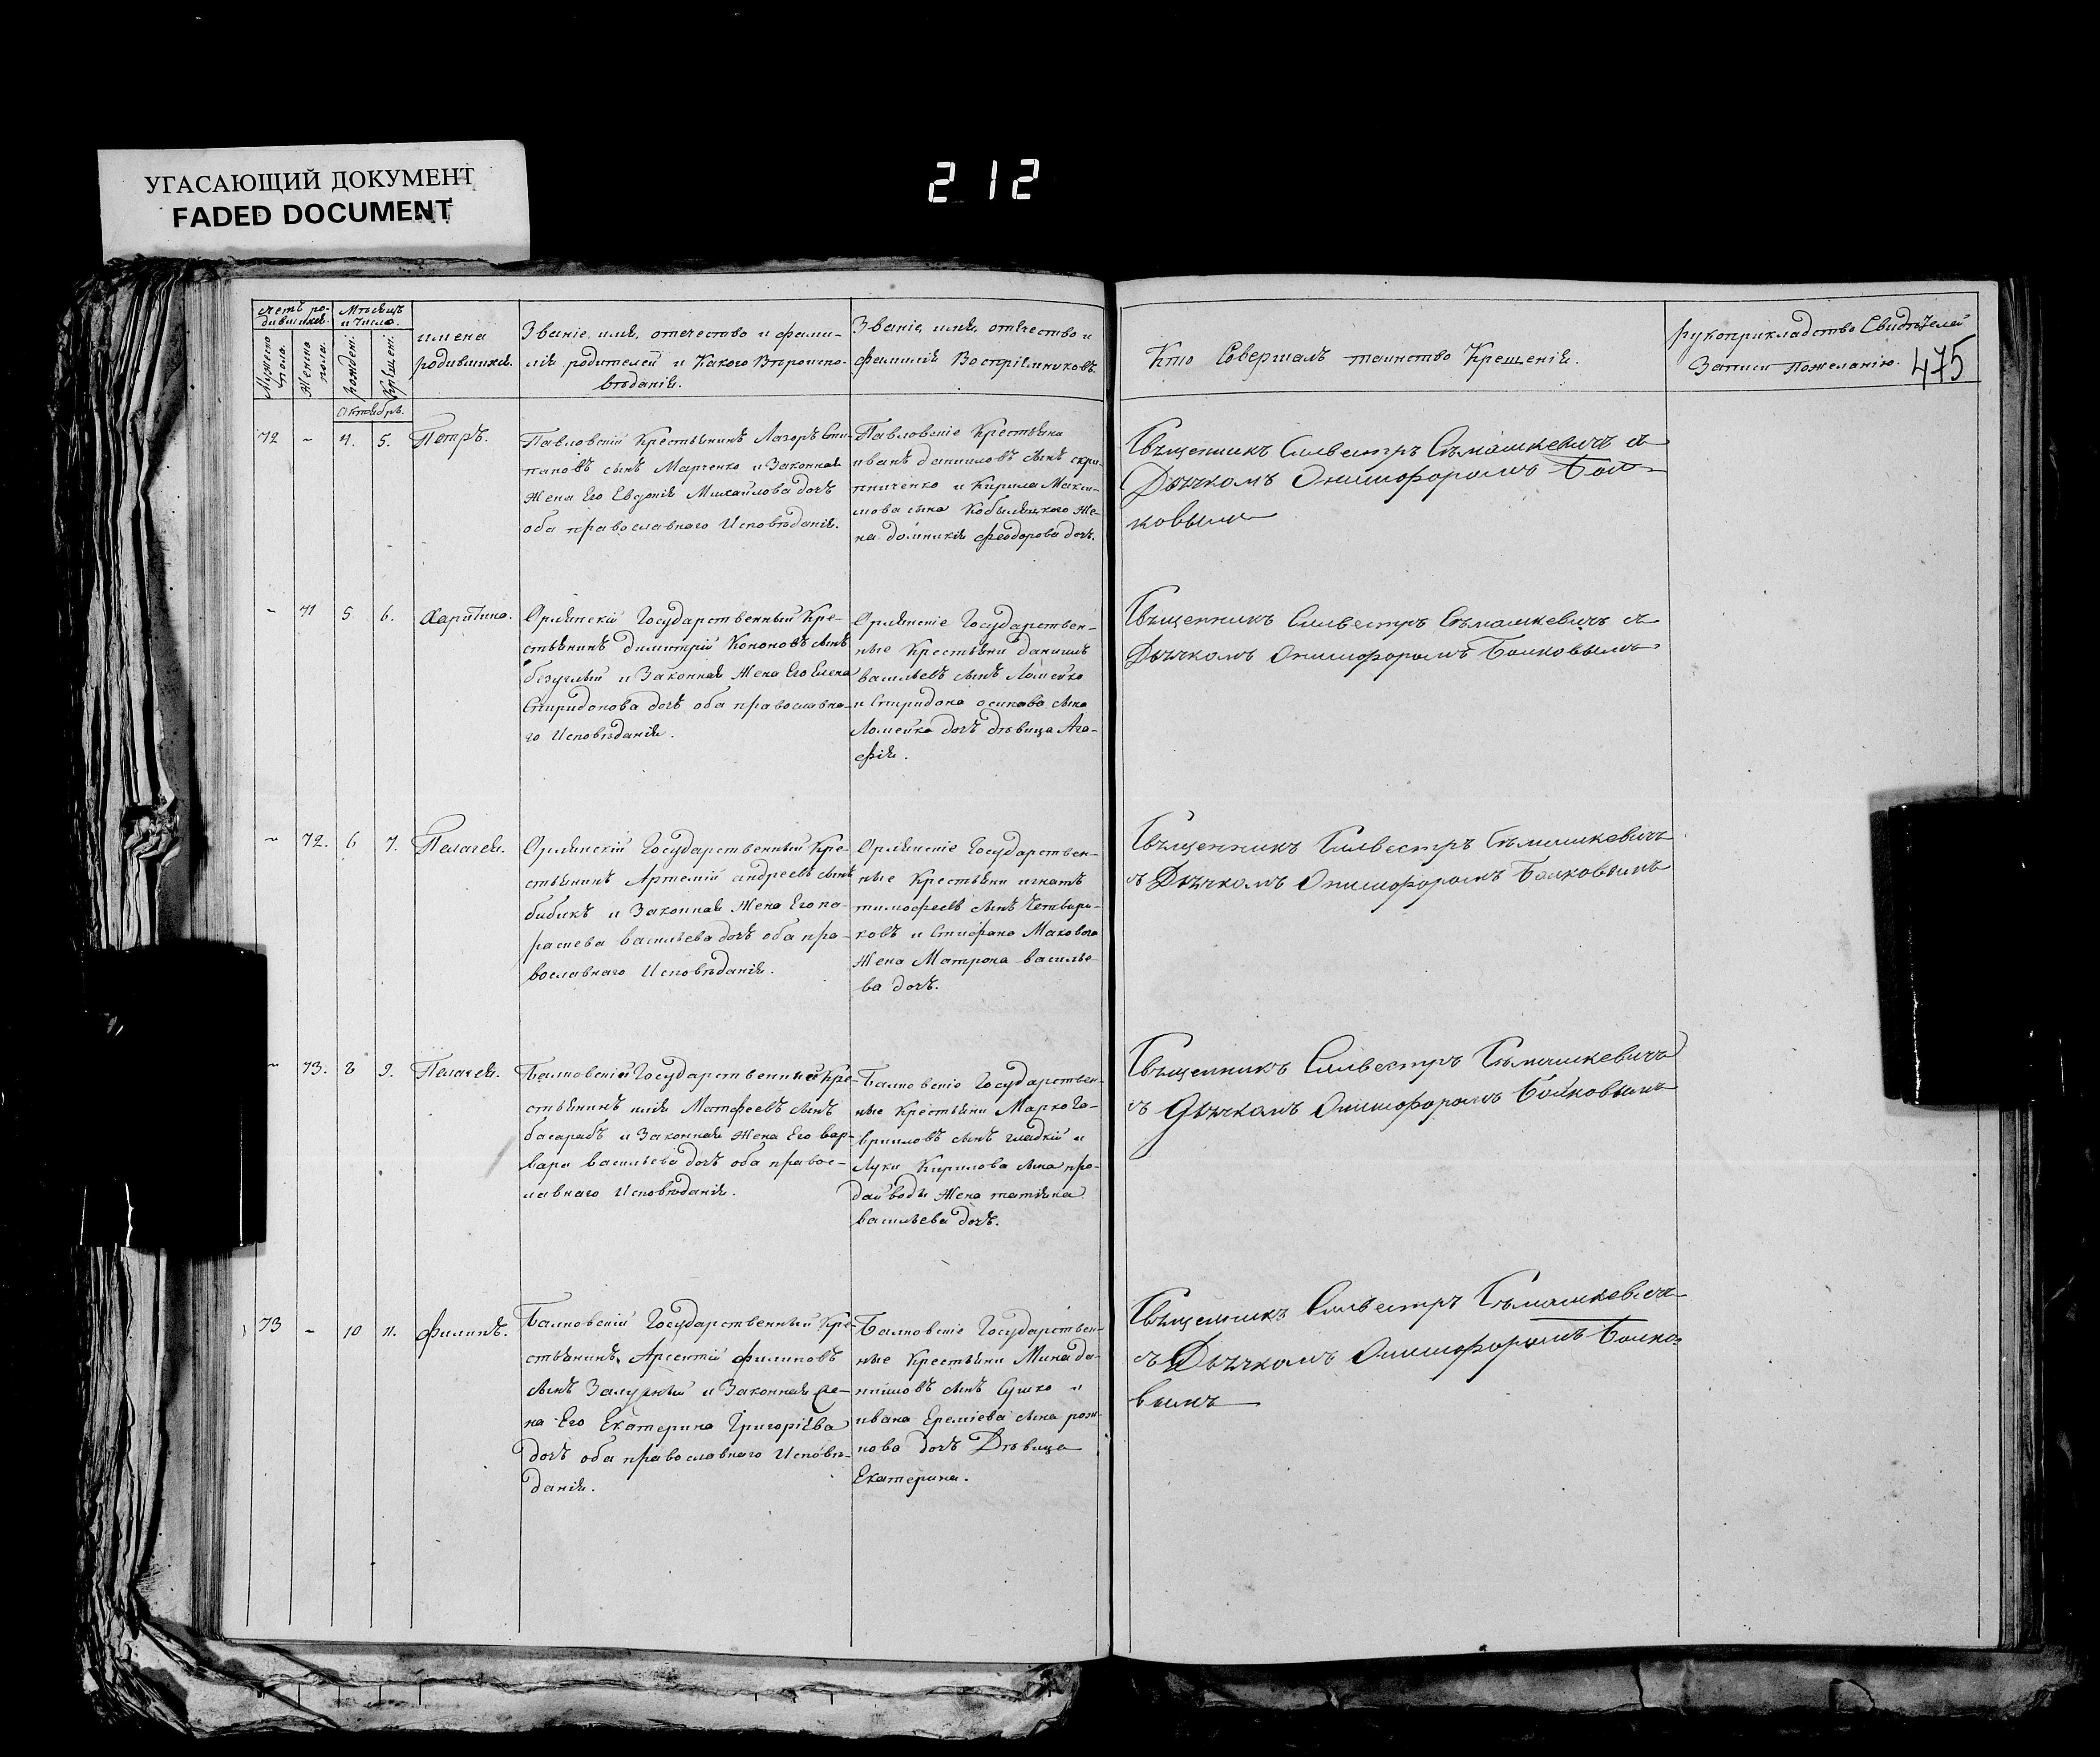 УГАСАЮЩИЙ ДОКУМЕНТ
FADED DOCUMENT
212
475
счетъ ро-
дившихся.
Мужеска
пола.
Женска
пола.
Мѣсяцъ
и число.
рожден:
Крещен:
имена
родившихся.
Званіе, имя, отечество и фами-
лія родителей и Какого Вѣроиспо-
вѣданія.
Званіе, имя, отечество и
фамилія Воспріемниковъ.
Кто Совершалъ таинство Крещенія.
рукоприкладство Свидѣтелей
Записи по желанію.
Октября.
72 - 4. 5. Петръ.
Павловскій Крестьянинъ Лазоръ Сти-
пановъ сынъ Марченко и Законная
Жена Его Евдокія Михайлова дочь
оба православнаго Исповѣданія.
Павловскіе Крестьяна
иванъ даниловъ сынъ скри-
пниченко и Кирила Макси-
мова сына Кобыляцкого Же-
на домникія феодорова дочь.
Священникъ Сильвестръ Сѣмашкевичъ съ
Дьячкомъ Онисифоромъ Бой-
ковымъ
- 71 5 6. Харитина.
Орлянскій Государственный Кре-
стьянинъ димитрій Кононовъ сынъ
безуглый и Законная Жена Его Елена
Спиридонова дочь оба православна-
го Исповѣданія.
Орлянскіе Государствен-
ные Крестьяни данишъ
васильевъ сынъ Ломейко
и Спиридона осипова сына
Ломейка дочь дѣвица Ага-
фія.
Священникъ Сильвестръ Сѣмашкевичъ съ
Дьячкомъ Онисифоромъ Бойковымъ
- 72. 6 7. Пелагея.
Орлянскій Государственный Кре-
стьянинъ Артемій андреевъ сынъ
бибикъ и Законная Жена Его па-
раскева васильева дочь оба пра-
вославнаго Исповѣданія.
Орлянскіе Государствен-
ные Крестьяни игнатъ
тимофеевъ сынъ Четвери-
ковъ и Стефана Маковога
Жена Матрона василье-
ва дочь.
Священникъ Сильвестръ Сѣмашкевичъ
съ Дьячкомъ Онисифоромъ Бойковымъ
- 73. 8 9. Пелагея.
Балковскій Государственный Кре-
стьянинъ илія Матфеевъ сынъ
басарабъ и Законная Жена Его вар-
вара васильева дочь оба правос-
лавнаго Исповѣданія.
Балковскіе Государствен-
ные Крестьяни Марко Га-
вриловъ сынъ гладкій и
Луки Кирилова сына про-
дайводы Жена татіяна
васильева дочь.
Священникъ Сильвестръ Сѣмашкевичъ
съ Дьячкомъ Онисифоромъ Бойковымъ
73 - 10 11. Филипъ.
Балковскій Государственный Кре-
стьянинъ Арсентій филиповъ
сынъ Залужный и Законная Же-
на Его Екатерина Григоріева
дочь оба православнаго Исповѣ-
данія.
Балковскіе Государствен-
ные Крестьяни Мина да-
ниловъ сынъ Сушко и
ивана Еремѣева сына рож-
нова дочь Дѣвица
Екатерина.
Священникъ Сильвестръ Сѣмашкевичъ
съ Дьячкомъ Онисифоромъ Бойко-
вымъ